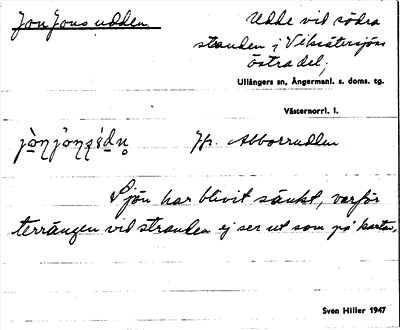 Jon Jons udden
Udde vid södra
stranden i Vibsätersjöns
östra del,
Ullångers sn, Ångermanl. s. doms. tg.
Västernorrl. l.
Jfr. Abborrudden
Sjön har blivit sänkt, varför
terrängen vid stranden ej ser ut som på kartan,
Sven Hiller 1947